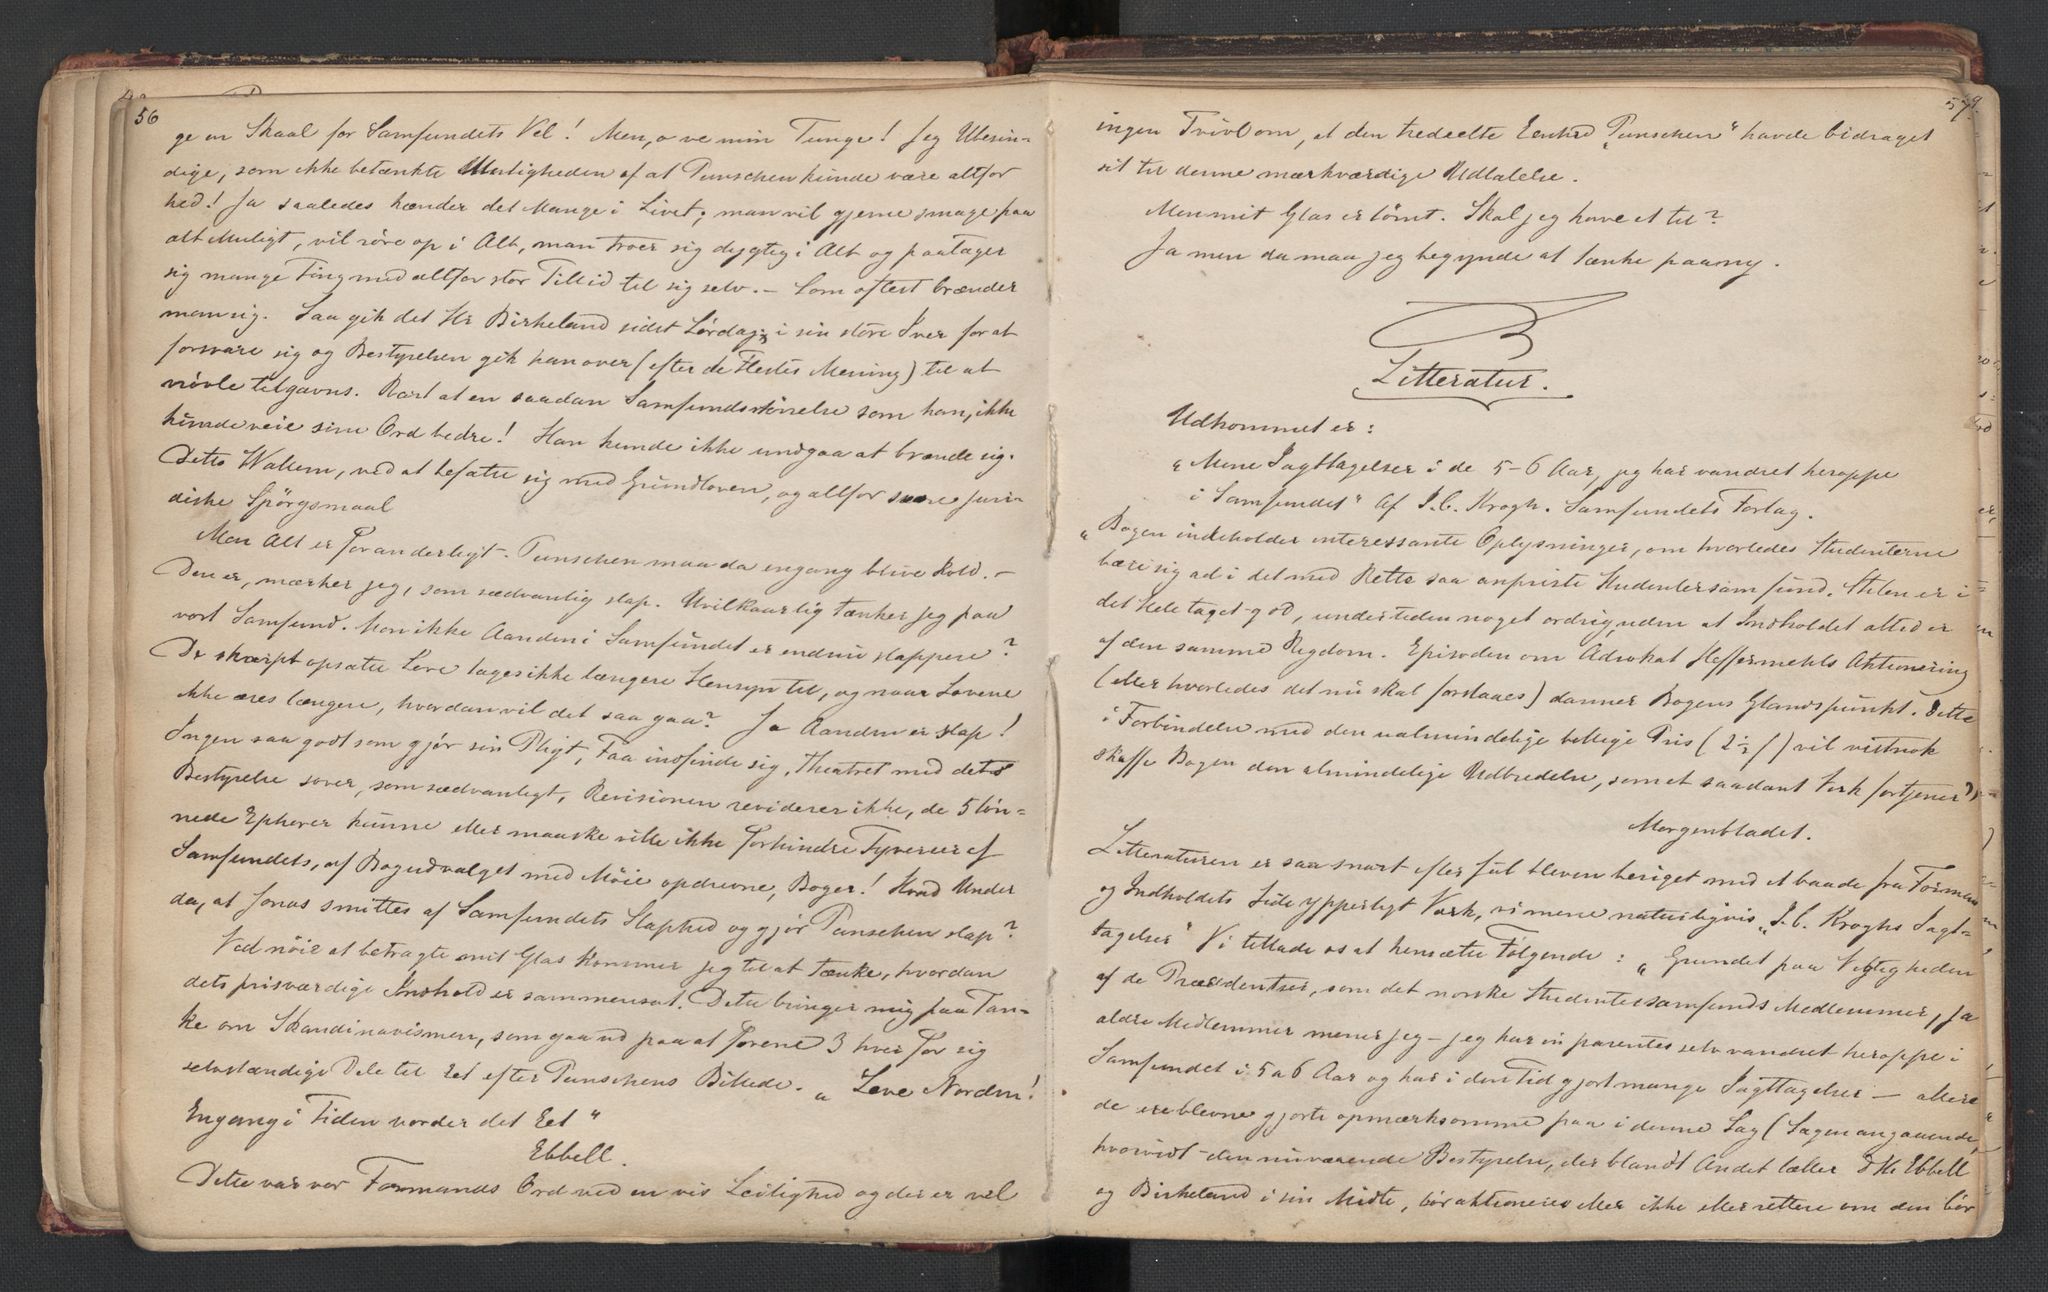 56
ge en Skaal for Samfundets Vel! Men, o ve min Tunge! Jeg Ubesin-
dige, som ikke betænkte Muligheden af at Punschen kunde være altfor
hed! Ja saaledes hænder det Mange i Livet; man vil gjerne smage paa
alt Muligt, vil röre op i Alt, man troer sig dygtig i Alt og paatager
sig mange Ting med altfor stor Tillid til sig selv. — Som oftest brænder
man sig. Saa gik det Hr Birkeland sidst Lördag; i sin store Iver for at
forsvare sig og Bestyrelsen gik han over (efter de Flestes Mening) til at
vrövle tilgavns. Rart at en saadan Samfundsstörrelse som han, ikke
kunde veie sine Ord bedre! Han kunde ikke undgaa at brænde sig.
Detto Wallem, ved at befatte sig med Grundloven, og altfor svære juri-
diske Spörgsmaal
Men Alt er foranderligt. Punschen maa da engang blive kold. —
Den er, mærker jeg, som sædvanlig slap. Uvilkaarlig tænker jeg paa
vort Samfund. Mon ikke Aanden i Samfundet er endnu slappere?
De skarpt opsatte Love tages ikke længere Hensyn til, og naar Lovene
ikke æres længere, hvordan vil det saa gaa? Ja Aanden er slap!
Ingen saa godt som gjör sin Pligt, Faa indfinde sig, Theatret med dets
Bestyrelse sover, som sædvanligt, Revisionen reviderer ikke, de 5 lön-
nede Ephorer kunne eller maaske ville ikke forhindre Tyverier af
Samfundets, af Bogudvalget med Möie opdrevne, Boger! Hvad Under
da, at Jonas smittes af Samfundets Slaphed og gjör Punschen slap?
Ved nöie at betragte mit Glas kommer jeg til at tænke, hvordan
dets prisværdige Indhold er sammensat. Dette bringer mig paa Tan-
ke om Skandinavismen, som gaar ud paa at forene 3 hver for sig
selvstændige Dele til Eet efter Punschens Billede. „Leve Norden!
Engang i Tiden vorder det Eet"
Ebbell.
Dette var vor Formands Ord ved en vis Leilighed og der er vel
57
ingen Tvivl om, at den tredeelte Eenhed „Punschen" havde bidraget
sit til denne mærkværdige Udtalelse.
Men mit Glas er tömt. Skal jeg have et til?
Ja men da maa jeg begynde at tænke paany.
Litteratur.
Udkommet er:
„Mine Iagttagelser i de 5-6 Aar, jeg har vandret heroppe
i Samfundet" af I. C. Krogh. Samfundets Forlag.
„Bogen indeholder interessante Oplysninger, om hvorledes Studenterne
bære sig ad i det med Rette saa anpriste Studentersamfund. Stilen er i
det Hele taget god, undertiden noget ordrig, uden at Indholdet altid er
af den samme Rigdom. Episoden om Advokat Heffermehls Aktionering
(eller hvorledes det nu skal forstaaes) danner Bogens Glandspunkt. Dette
i Forbindelse med den ualmindelige billige Pris (2½ ſ) vil vistnok
skaffe Bogen den almindelige Udbredelse, som et saadant Værk fortjener"
Morgenbladet.
Litteraturen er saa snart efter Jul bleven beriget med et baade fra Formens
og Indholdets Side ypperligt Værk, vi mene naturligvis „I. C. Kroghs Iagt-
tagelser" Vi tillade os at hensætte Fölgende: „Grundet paa Vigtigheden
af de Præcedentser, som det norske Studentersamfunds Medlemmer, ja
aldre Medlemmer mener jeg — jeg har in parentes selv vandret heroppe i
Samfundet i 5 a 6 Aar og har i den Tid gjort mange Iagttagelser — allere
de ere blevne gjorte opmærksomme paa i denne Sag (Sagen angaaende,
hvorvidt den nuværende Bestyrelse, der blandt Andet tæller d'Hr Ebbell
og Birkeland i sin Midte, bör aktioneres eller ikke eller rettere om den bör